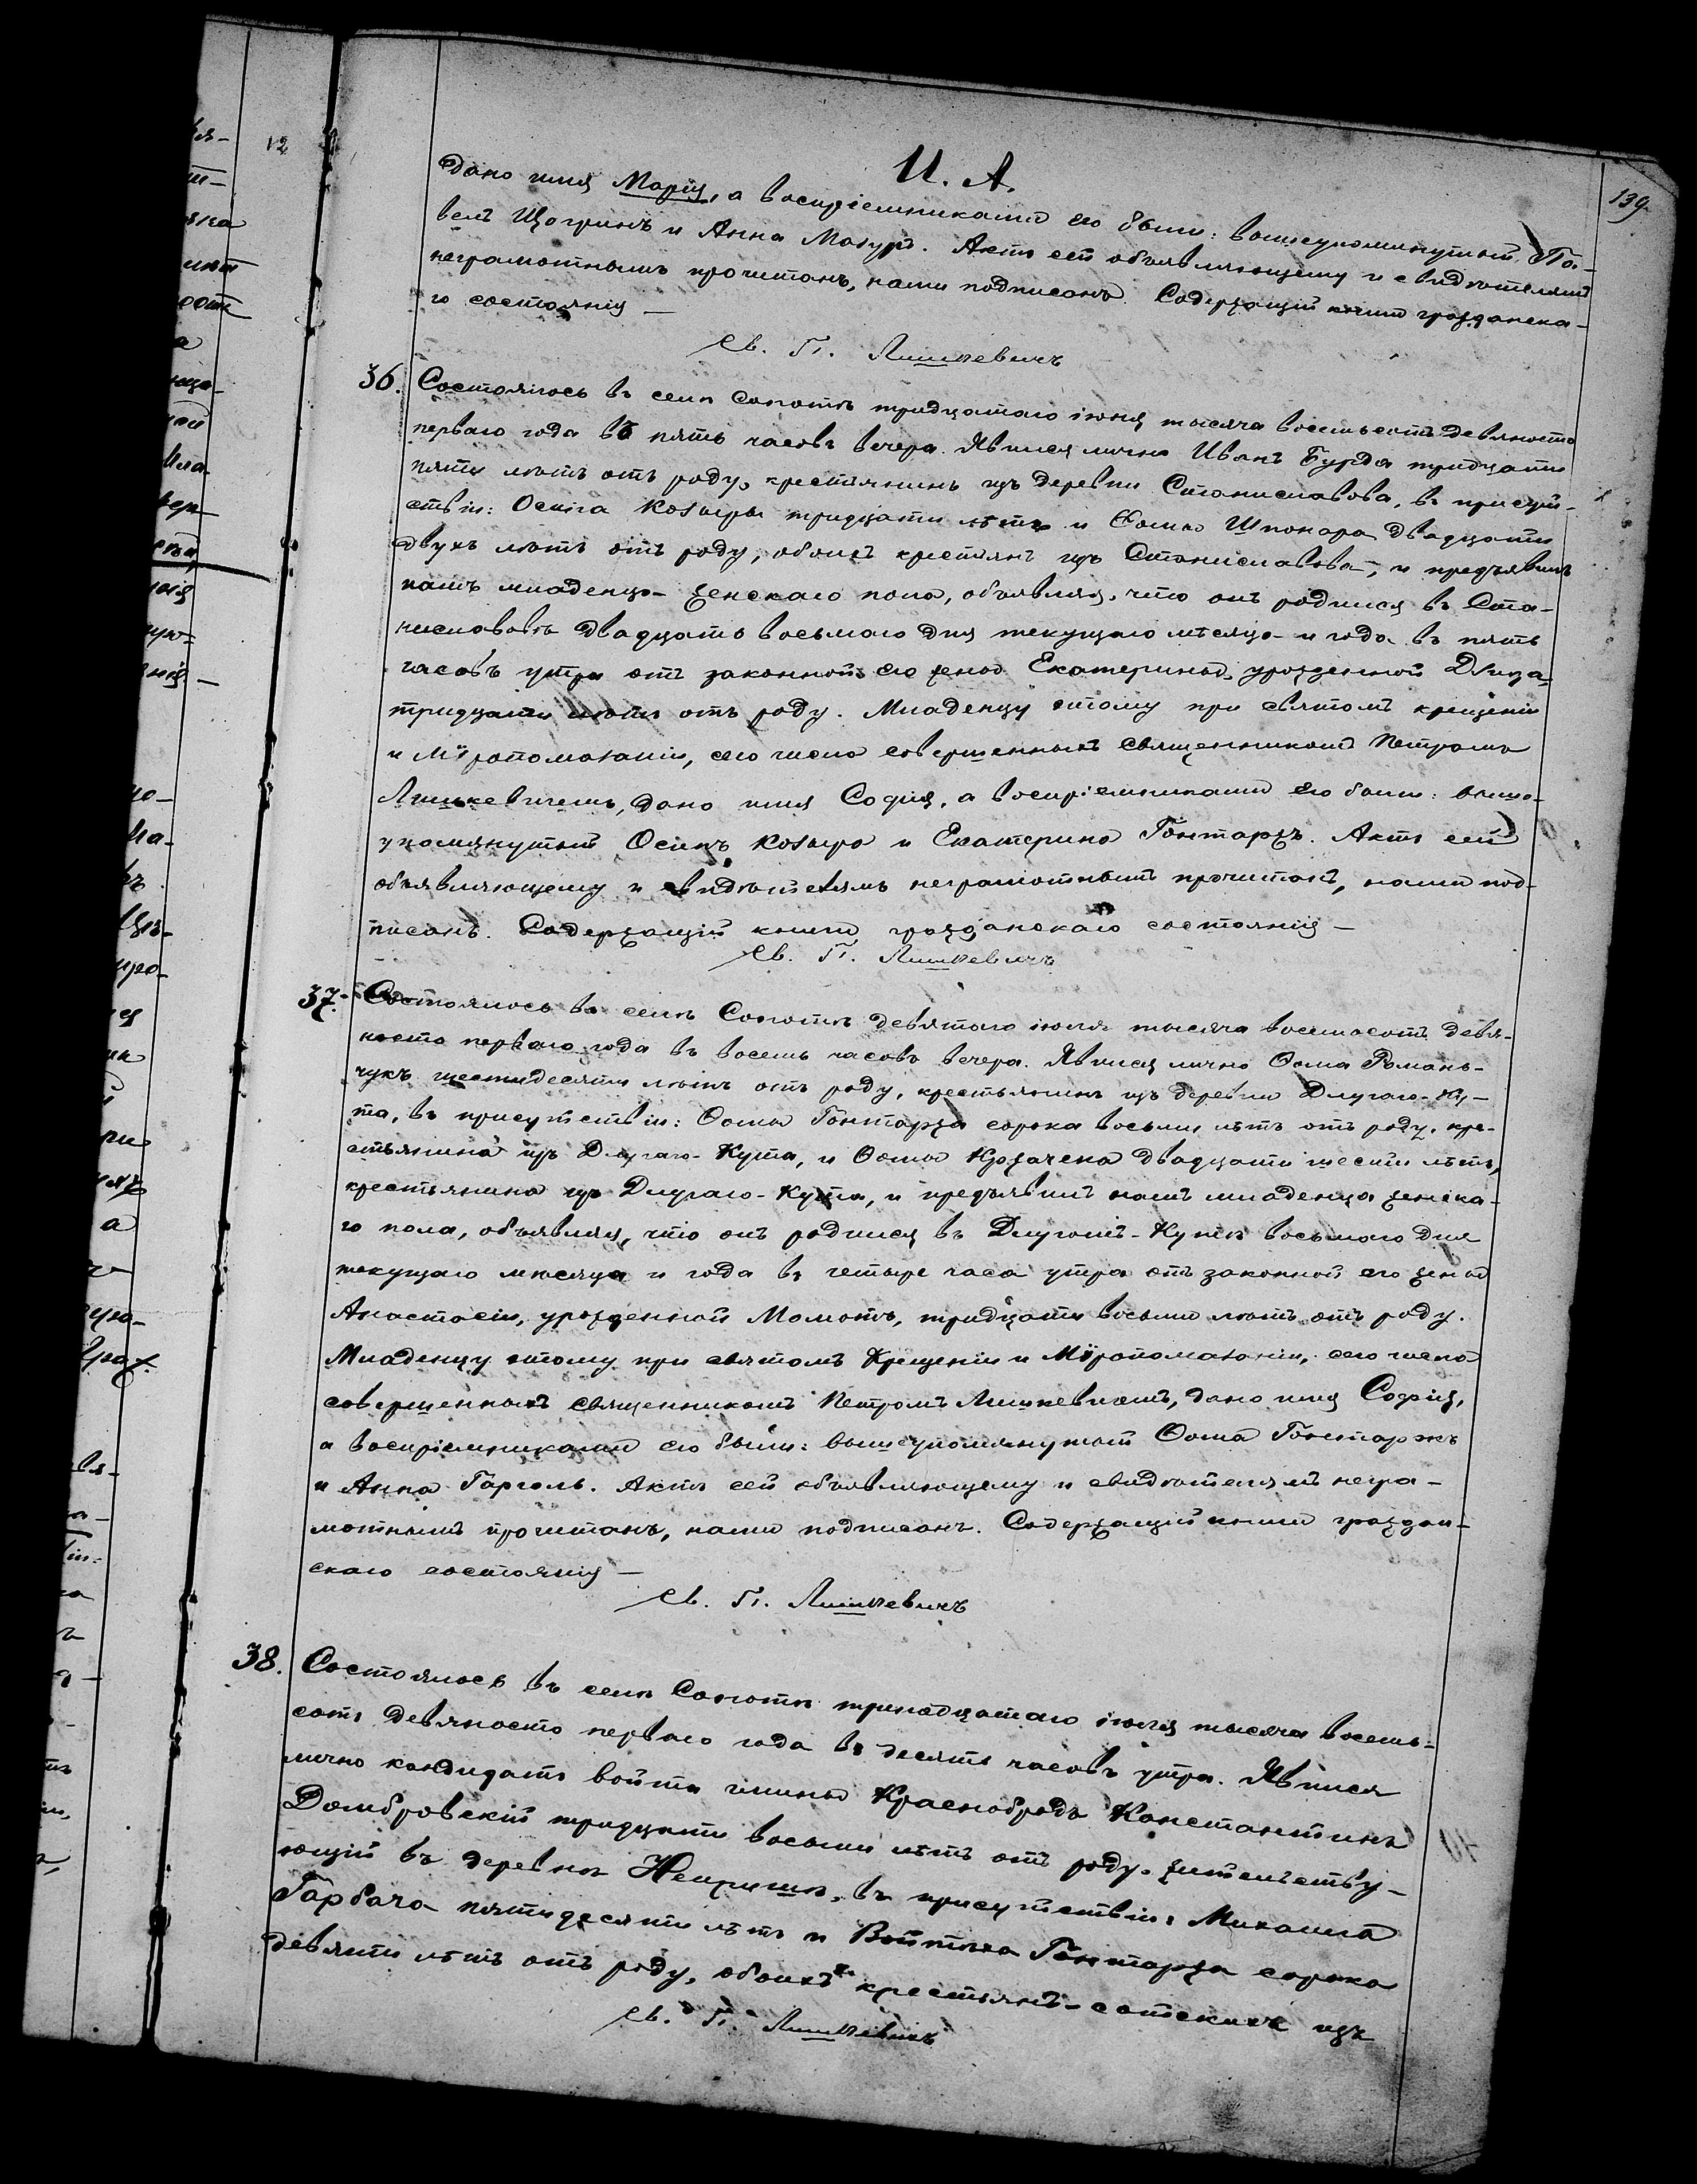 И. А.
139
12
дано имя Марія, а воспріемниками его были: вышеупомянутый Па-
велъ Щогринъ и Анна Мазуръ. Актъ сей объявляющему и свидѣтелямъ
неграмотнымъ прочитанъ, нами подписанъ. Содержащій книги гражданска-
го состоянія —
Св. П. Лишкевичъ
36. Состоялось въ селѣ Сопотѣ тридцатаго іюня тысяча восемьсотъ девяносто
перваго года въ пять часовъ вечера. Явился лично Иванъ Бурда тридцати
пяти лѣтъ отъ роду, крестьянинъ изъ деревни Станиславова, въ присут-
ствіи: Осипа Козыры тридцати лѣтъ и Ѳомы Шпонара двадцати
двухъ лѣтъ отъ роду, обоихъ крестьянъ изъ Станиславова, и предъявилъ
намъ младенца женскаго пола, объявляя, что онъ родился въ Ста-
ниславовѣ двадцать восьмаго дня текущаго мѣсяца и года въ пять
часовъ утра отъ законной его жены Екатерины, урожденной Дзида
тридцати лѣтъ отъ роду. Младенцу этому при святомъ крещеніи
и Мѵропомазаніи, сего числа совершенныхъ священникомъ Петромъ
Лишкевичемъ, дано имя Софія, а воспріемниками его были: выше-
упомянутый Осипъ Козыра и Екатерина Гонтаржъ. Актъ сей
объявляющему и свидѣтелямъ неграмотнымъ прочитанъ, нами под-
писанъ. Содержащій книги гражданскаго состоянія —
Св. П. Лишкевичъ
37. Состоялось въ селѣ Сопотѣ девятаго іюля тысяча восемьсотъ девя-
носто перваго года въ восемь часовъ вечера. Явился лично Ѳома Романь-
чукъ шестидесяти лѣтъ отъ роду, крестьянинъ изъ деревни Длугаго-Ку-
та, въ присутствіи: Ѳомы Гонтаржа сорока восьми лѣтъ отъ роду, кре-
стьянина изъ Длугаго-Кута, и Ѳомы Козачека двадцати шести лѣтъ,
крестьянина изъ Длугаго-Кута, и предъявилъ намъ младенца женска-
го пола, объявляя, что онъ родился въ Длугомъ-Кутѣ восьмаго дня
текущаго мѣсяца и года въ четыре часа утра отъ законной его жены
Анастасіи, урожденной Момотъ, тридцати восьми лѣтъ отъ роду.
Младенцу этому при святомъ Крещеніи и Мѵропомазаніи, сего числа
совершенныхъ священникомъ Петромъ Лишкевичемъ, дано имя Софія,
а воспріемниками его были: вышеупомянутый Ѳома Гонтаржъ
и Анна Гарголь. Актъ сей объявляющему и свидѣтелямъ негра-
мотнымъ прочитанъ, нами подписанъ. Содержащій книги граждан-
скаго состоянія —
Св. П. Лишкевичъ
38. Состоялось въ селѣ Сопотѣ тринадцатаго іюля тысяча восемь-
сотъ девяносто перваго года въ десять часовъ утра. Явился
лично кандидатъ войта гмины Краснобродъ Константинъ
Домбровскій тридцати восьми лѣтъ отъ роду, жительству-
ющій въ деревнѣ Непришъ, въ присутствіи: Михаила
Гарбача пятидесяти лѣтъ и Войтѣха Гонтаржа сорока
девяти лѣтъ отъ роду, обоихъ крестьянъ-сотскихъ изъ
Св. П. Лишкевичъ